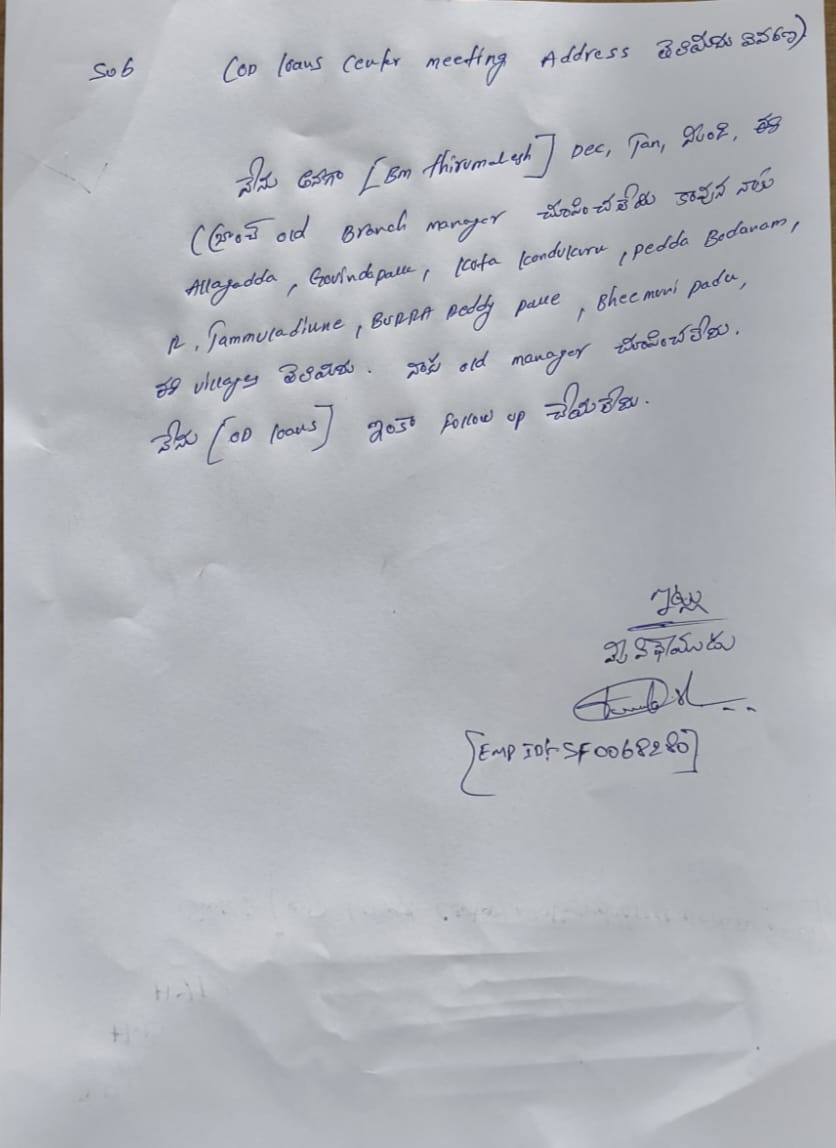 Sub (OD loans Center meetting Address తెలియదు వివరణ)
నేను అనగా [Bm thirumalesh] Dec, Jan, నుంచి, ఈ
(బ్రాంచ్ old Branch manager చూపించలేదు కావున నాకు
Allagadda, Govindapalle, Kota Kondukuru, Pedda Bodanam,
R, Jammuladiune, BURRA Reddy palle, Bheemuni padu,
ఈ villages తెలియదు. నాకు old manager చూపించలేదు.
నేను [OD loans] ఇంకా Follow up చేయలేదు.
ఇట్లు
మీ విధేయుడు
[EMP ID:- SF0068280]